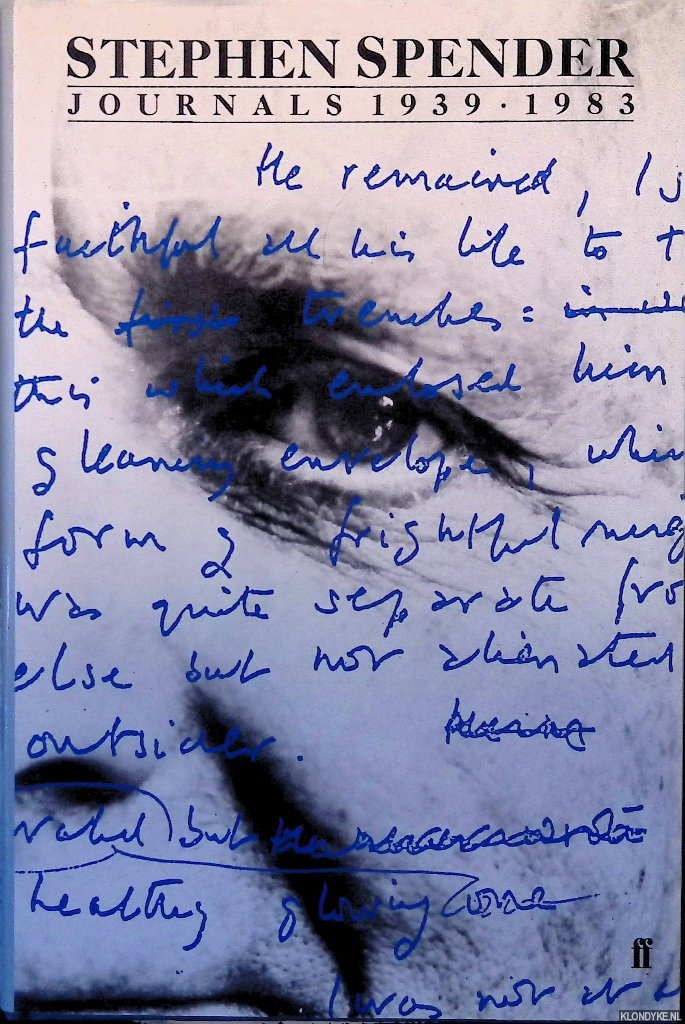 STEPHEN SPENDER
JOURNALS 1939 · 1983
He remained, I s
faithful all his life to t
the first trenches:
this which enclosed him
gleaming envelope, whi
form of frightful
was quite separate fro
else but not alienated
outsider.
but
healthy glowing
I was not at a
ff
KLONDYKE.NL